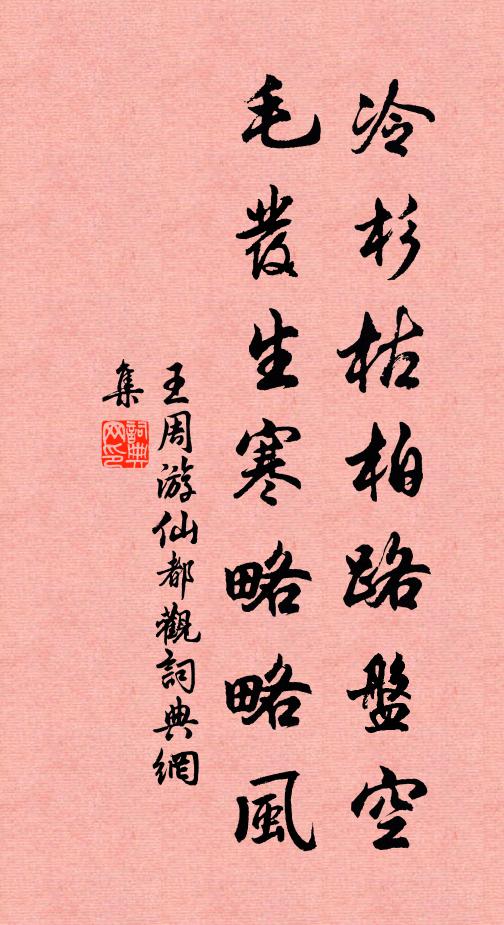 冷杉枯柏路盤空
毛發生寒略略風
王周游仙都觀詞典網
集
詞典
网印